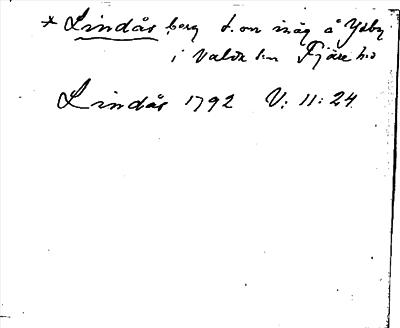 * Lindås berg t. om inäg å Ysby
i Valda sn Fjäre hd
Lindås 1792 V: 11: 24